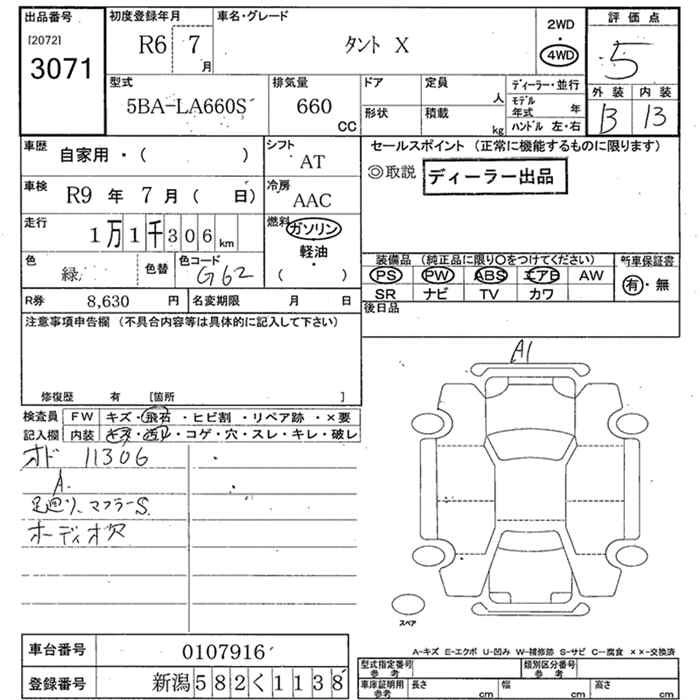 出品番号
[2072]
3071
初度登録年月
R6 7
月
車名・グレード
タント X
2WD
・
4WD
評価点
5
外装 内装
B B
型式
5BA-LA660S
排気量
660
CC
ドア
形状
定員
人
積載
kg
ディーラー・並行
モデル年式 年
ハンドル 左・右
車歴
自家用・( )
シフト
AT
セールスポイント (正常に機能するものに限ります)
◎取説 ディーラー出品
車検
R9 年 7 月 ( 日)
冷房
AAC
走行
1万1千306km
燃料
ガソリン
軽油
・
( )
色
緑
色替
色コード
G62
装備品 (純正品に限り○をつけてください)
PS PW ABS エアB AW
SR ナビ TV カワ
新車保証書
有・無
R券 8,630 円
名変期限 月 日
後日品
注意事項申告欄 (不具合内容等は具体的に記入して下さい)
修復歴 有 [箇所 ]
検査員
記入欄
FW キズ・飛石・ヒビ割・リペア跡・×要
内装 キズ・凹ル・コゲ・穴・スレ・キレ・破レ
オド 11306
A
足廻り、マフラーS
オーディオ穴
A1
スペア
A-キズ E-エクボ U-凹み W-補修跡 S-サビ C-腐食 ××-交換済
車台番号 0107916
登録番号 新潟582く1138
型式指定番号
参考
類別区分番号
参考
車庫証明用
参考
長さ cm
幅 cm
高さ cm